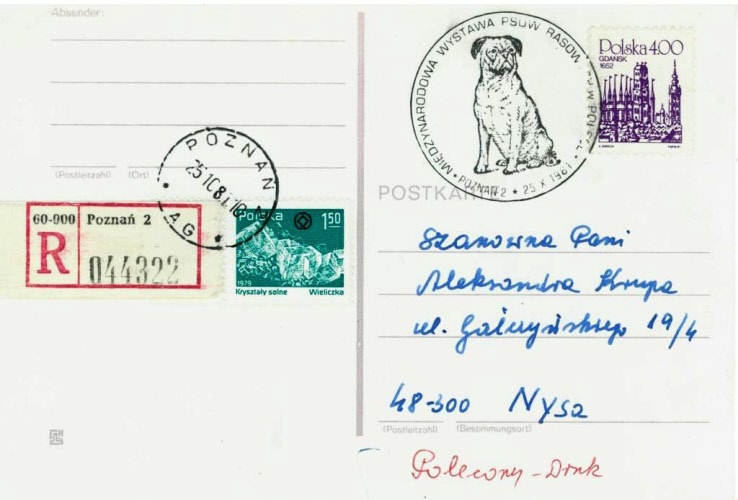 Absender:
(Postleitzahl) (Ort)
POZNAŃ
25 10 81
AG
60-900 Poznań 2
R
044322
Polska 1,50
1979
Kryształy solne Wieliczka
MIĘDZYNARODOWA WYSTAWA PSÓW RASOW
POZNAŃ 2 ★ 25 X 1981
Polska 4,00
GDAŃSK
1652
POSTKARTE
Szanowna Pani
Aleksandra Krupa
ul. Gałczyńskiego 19/4
48-300 Nysa
(Postleitzahl) (Bestimmungsort)
Polecony - Druk